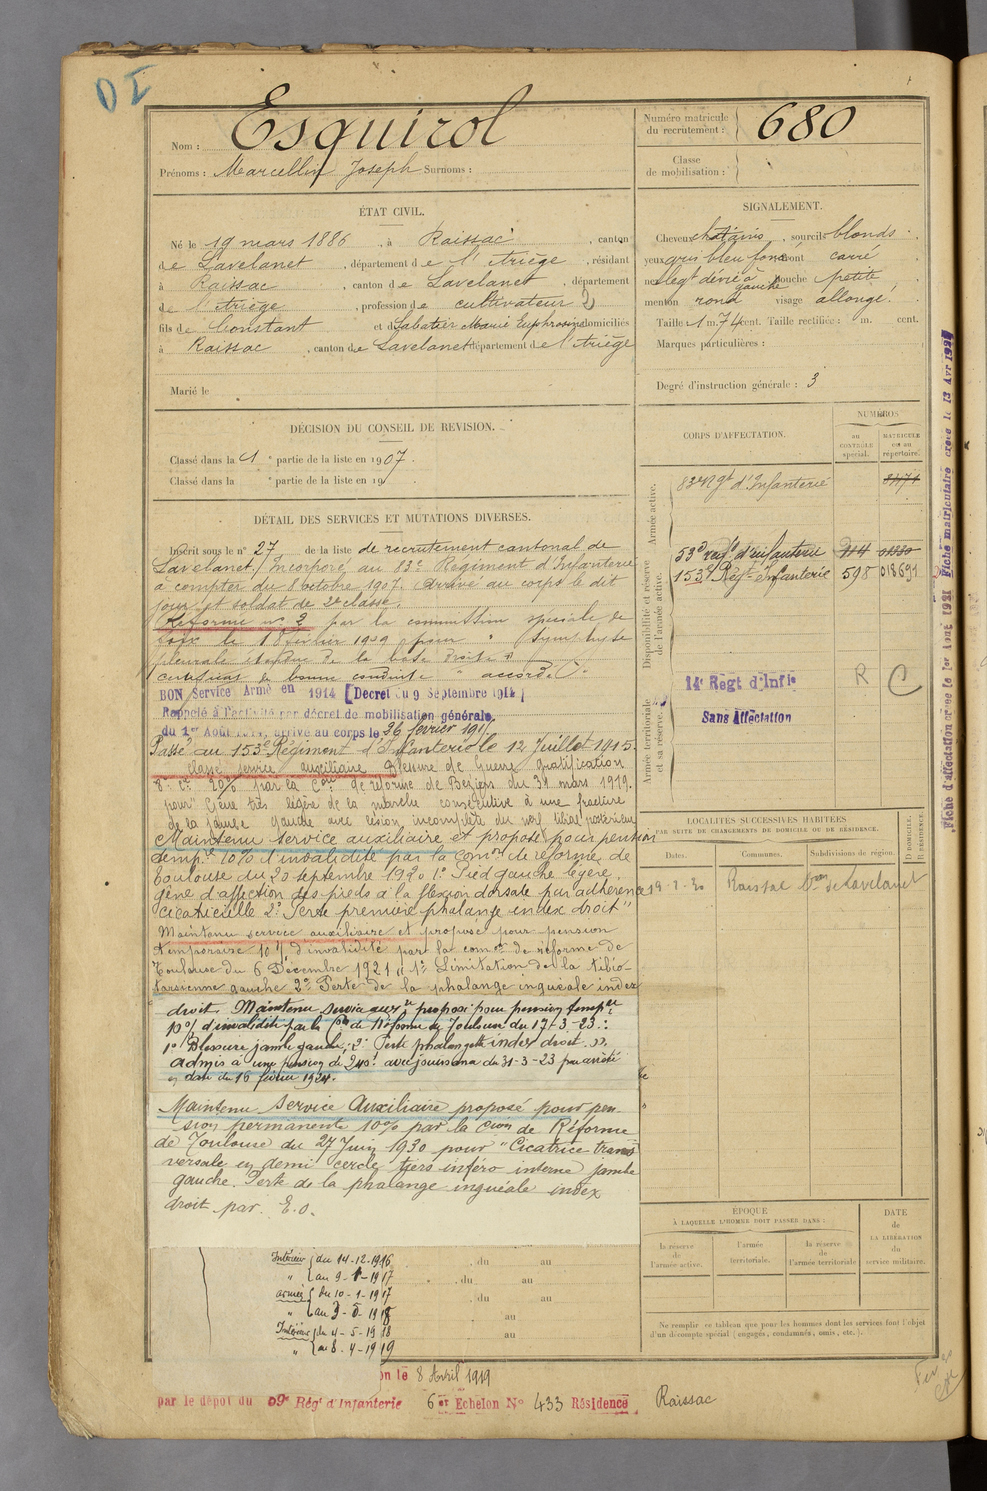 Nom : Esquirol
Prénoms : Marcellin Joseph Surnoms :
Numéro matricule du recrutement : 680
Classe de mobilisation :
ÉTAT CIVIL.
Né le 19 mars 1886, à Raissac, canton
de Lavelanet, département de l'Ariège, résidant
à Raissac, canton de Lavelanet, département
de l'Ariège, profession de cultivateur
fils de Constant et de Sabatier Marie Euphrosine domiciliés
à Raissac, canton de Lavelanet département de l'Ariège
Marié le
SIGNALEMENT.
Cheveux châtains, sourcils blonds
yeux gris bleu foncé front carré
nez légt dévié à gauche bouche petite
menton rond visage allongé
Taille 1 m. 74 cent. Taille rectifiée : m. cent.
Marques particulières :
Degré d'instruction générale : 3
DÉCISION DU CONSEIL DE REVISION.
Classé dans la 1e partie de la liste en 1907.
Classé dans la e partie de la liste en 19
DÉTAIL DES SERVICES ET MUTATIONS DIVERSES.
Inscrit sous le n° 27 de la liste de recrutement cantonal de
Lavelanet. Incorporé au 83e Régiment d'Infanterie
à compter du 8 octobre 1907. Arrivé au corps le dit
jour et soldat de 2e classe.
Réformé n° 2 par la commission spéciale de
Foix le 18 février 1909 pour " Symphyse
pleurale étendue de la base droite "
certificat de bonne conduite " accordé "
BON Service Armé en 1914 [Décret du 9 Septembre 1914]
Rappelé à l'activité par décret de mobilisation générale
du 1er Août 1914, arrivé au corps le 26 février 191
Passé au 153e Régiment d'Infanterie le 12 Juillet 1915.
Classé service auxiliaire Blessure de Guerre gratification
8e c. 20% par la Con de réforme de Béziers du 31 mars 1919.
pour Gêne très légère de la marche consécutive à une fracture
de la jambe gauche avec lésion incomplète du nerf tibial postérieur
Maintenu service auxiliaire et proposé pour pension
temp. 10% d'invalidité par la Comon de réforme de
Toulouse du 20 septembre 1920 1° Pied gauche légère
gêne d'affection des pieds à la flexion dorsale par adhérence
cicatricielle 2° Perte première phalange index droit"
Maintenu service auxiliaire et proposé pour pension
temporaire 10% d'invalidité par la comon de réforme de
Toulouse du 6 Décembre 1921 " 1° Limitation de la tibio-
tarsienne gauche 2° Perte de la phalange inguéale index
droit. Maintenu service auxre proposé pour pension tempre
10% d'invalidité par la Con de Réforme de Toulouse du 17-3-23 :
1° Blessure jambe gauche; 2° Perte phalangette index droit ».
Admis à une pension de 240f avec jouissance du 31-3-23 par arrêté
en date du 16 février 1924.
Maintenu Service Auxiliaire proposé pour pen-
sion permanente 10% par la Cion de Réforme
de Toulouse du 27 Juin 1930 pour "Cicatrice trans
versale en demi cercle tiers inféro interne jambe
gauche. Perte de la phalange inguéale index
droit par. E.O.
Intérieur { du 14-12-1916
" { au 9-1-1917
armée { du 10-1-1917
" { au 3-5-1918
Intérieur { du 4-5-1918
" { au 8-4-1919
, du au
, du au
, du au
au
au
on le 8 Avril 1919
par le dépôt du 59e Régt d'Infanterie 6 er Echelon N° 433 Résidence Raissac
CORPS D'AFFECTATION.
NUMÉROS
au CONTRÔLE spécial.
MATRICULE ou au répertoire.
Armée active.
83e Rgt d'Infanterie
Disponibilité et réserve de l'armée active.
53e régt d'infanterie
153e Régt Infanterie 598 018691
Armée territoriale et sa réserve.
14e Regt d'Infie R C
Sans Affectation
LOCALITÉS SUCCESSIVES HABITÉES
PAR SUITE DE CHANGEMENTS DE DOMICILE OU DE RÉSIDENCE.
Dates. Communes. Subdivisions de région. D DOMICILE. R RÉSIDENCE.
Raissac
ÉPOQUE
À LAQUELLE L'HOMME DOIT PASSER DANS :
la réserve de l'armée active.
l'armée territoriale.
la réserve de l'armée territoriale
DATE de LA LIBÉRATION du service militaire.
Ne remplir ce tableau que pour les hommes dont les services font l'objet
d'un décompte spécial (engagés, condamnés, omis, etc.).
Fiche d'affectation créée le 1er Août 1921 Fiche matriculaire créée le 13 Avr 192